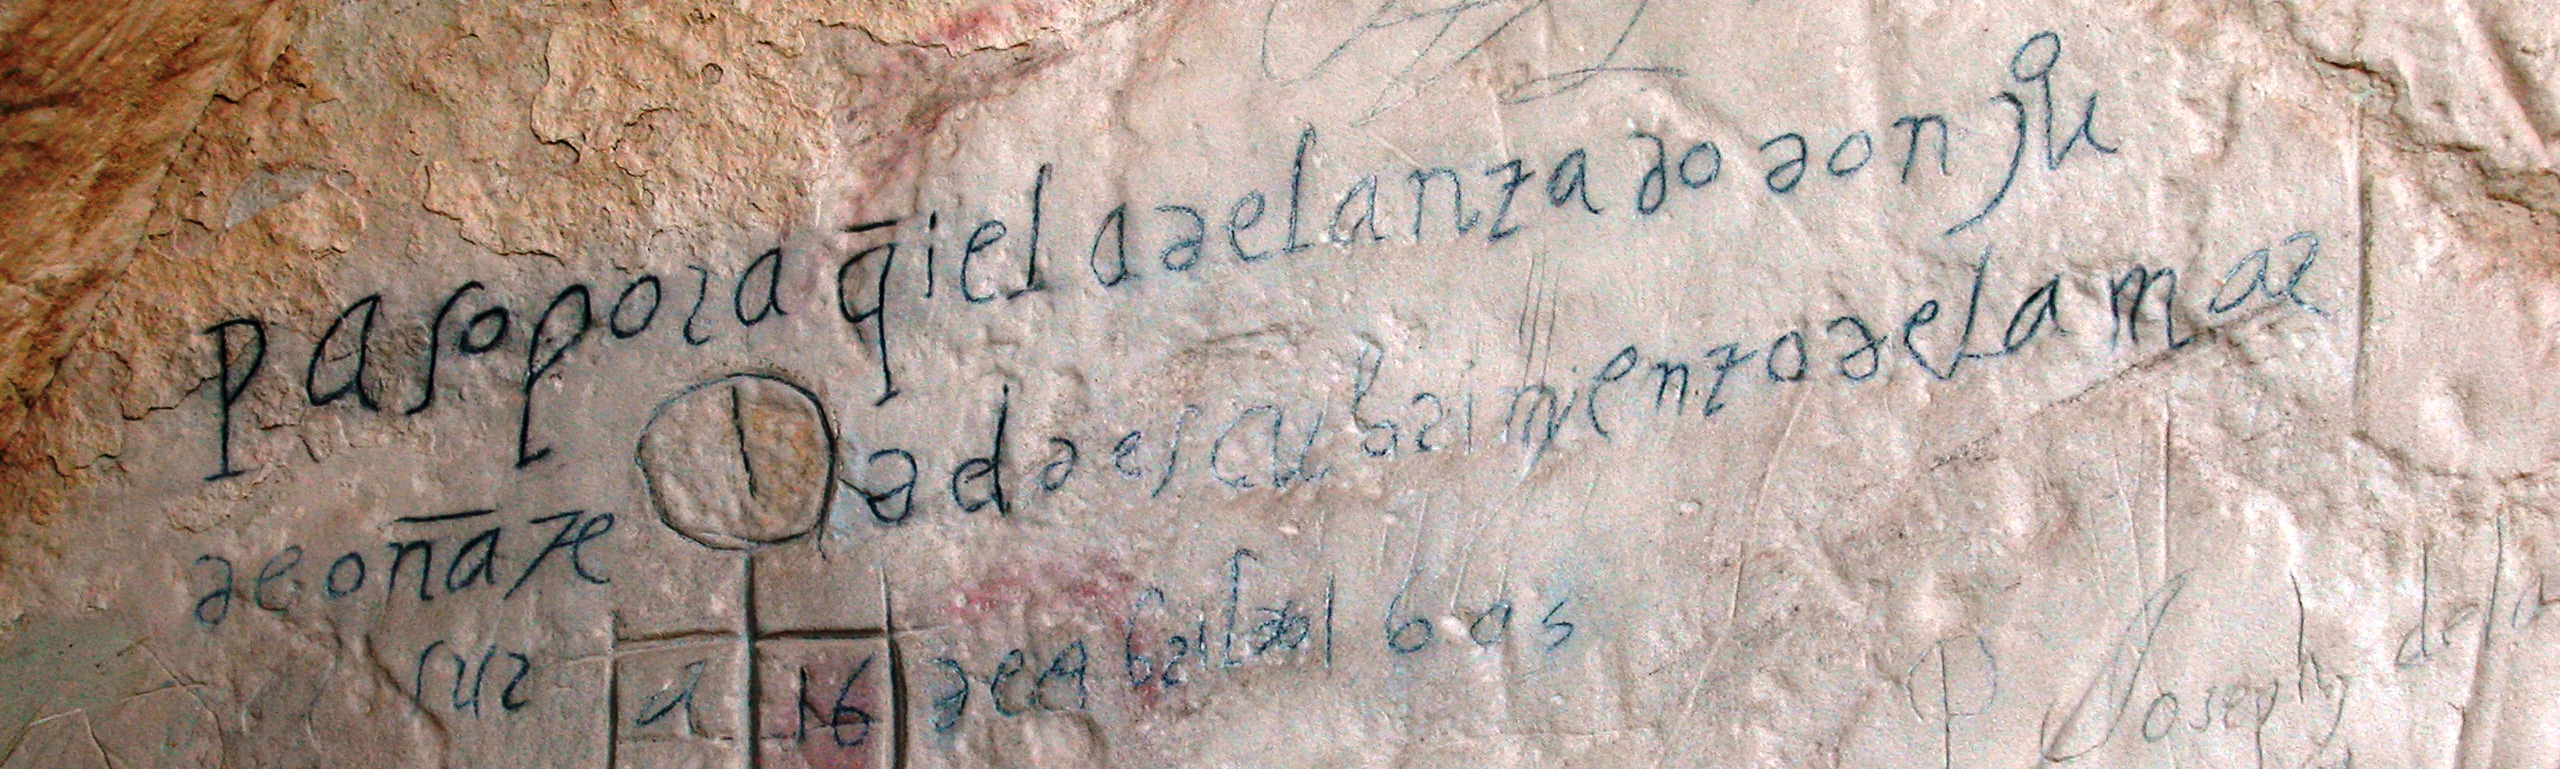 paso por aq̄i el adelantado don juº
de oñate descubrimiento de la mar
sur a 16 de abril del 605
P Joseph de la